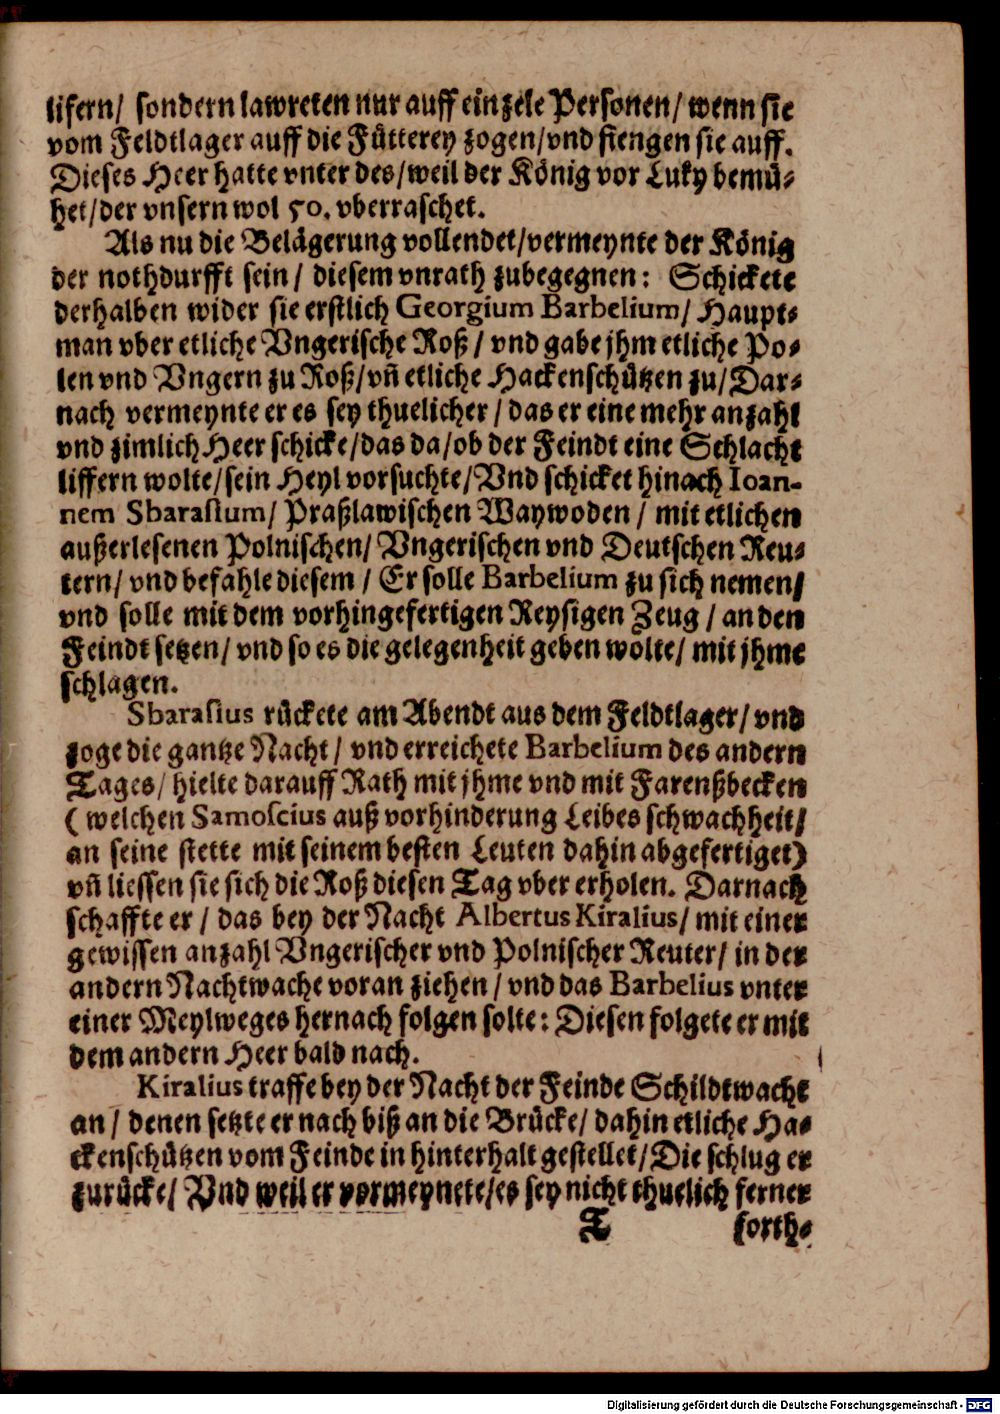 lifern/ sondern lawreten nur auff einzele Personen/ wenn sie
vom Feldtlager auff die Fütterey zogen/vnd fiengen sie auff.
Dieses Heer hatte vnter des/weil der König vor Luky bemü-
het/der vnsern wol 50. vberraschet.
Als nu die Belägerung vollendet/vermeynte der König
der nothdurfft sein/ diesem vnrath zubegegnen: Schickete
derhalben wider sie erstlich Georgium Barbelium/ Haupt-
man vber etliche Vngerische Roß/ vnd gabe jhm etliche Po-
len vnd Vngern zu Roß/vñ etliche Hackenschützen zu/Dar-
nach vermeynte er es sey thuelicher/ das er eine mehr anzahl
vnd zimlich Heer schicke/das da/ob der Feindt eine Schlacht
liffern wolte/sein Heyl vorsuchte/Vnd schicket hinach Ioan-
nem Sbarasium/ Praßlawischen Waywoden/ mit etlichen
außerlesenen Polnischen/ Vngerischen vnd Deutschen Reu-
tern/ vnd befahle diesem/ Er solle Barbelium zu sich nemen/
vnd solle mit dem vorhingefertigen Reysigen Zeug/ an den
Feindt setzen/ vnd so es die gelegenheit geben wolte/ mit jhme
schlagen.
Sbarasius rückete am Abendt aus dem Feldtlager/ vnd
zoge die gantze Nacht/ vnd erreichete Barbelium des andern
Tages/ hielte darauff Rath mit jhme vnd mit Farenßbecken
( welchen Samoscius auß vorhinderung Leibes schwachheit/
an seine stette mit seinem besten Leuten dahin abgefertiget)
vñ liessen sie sich die Roß diesen Tag vber erholen. Darnach
schaffte er/ das bey der Nacht Albertus Kiralius/ mit einer
gewissen anzahl Vngerischer vnd Polnischer Reuter/ in der
andern Nachtwache voran ziehen/ vnd das Barbelius vnter
einer Meylweges hernach folgen solte: Diesen folgete er mit
dem andern Heer bald nach.
Kiralius traffe bey der Nacht der Feinde Schildtwacht
an/ denen setzte er nach biß an die Brücke/ dahin etliche Ha-
ckenschützen vom Feinde in hinterhalt gestellet/Die schlug er
zurücke/ Vnd weil er vormeynete/es sey nicht thuelich ferner
T forth-
Digitalisierung gefördert durch die Deutsche Forschungsgemeinschaft - DFG